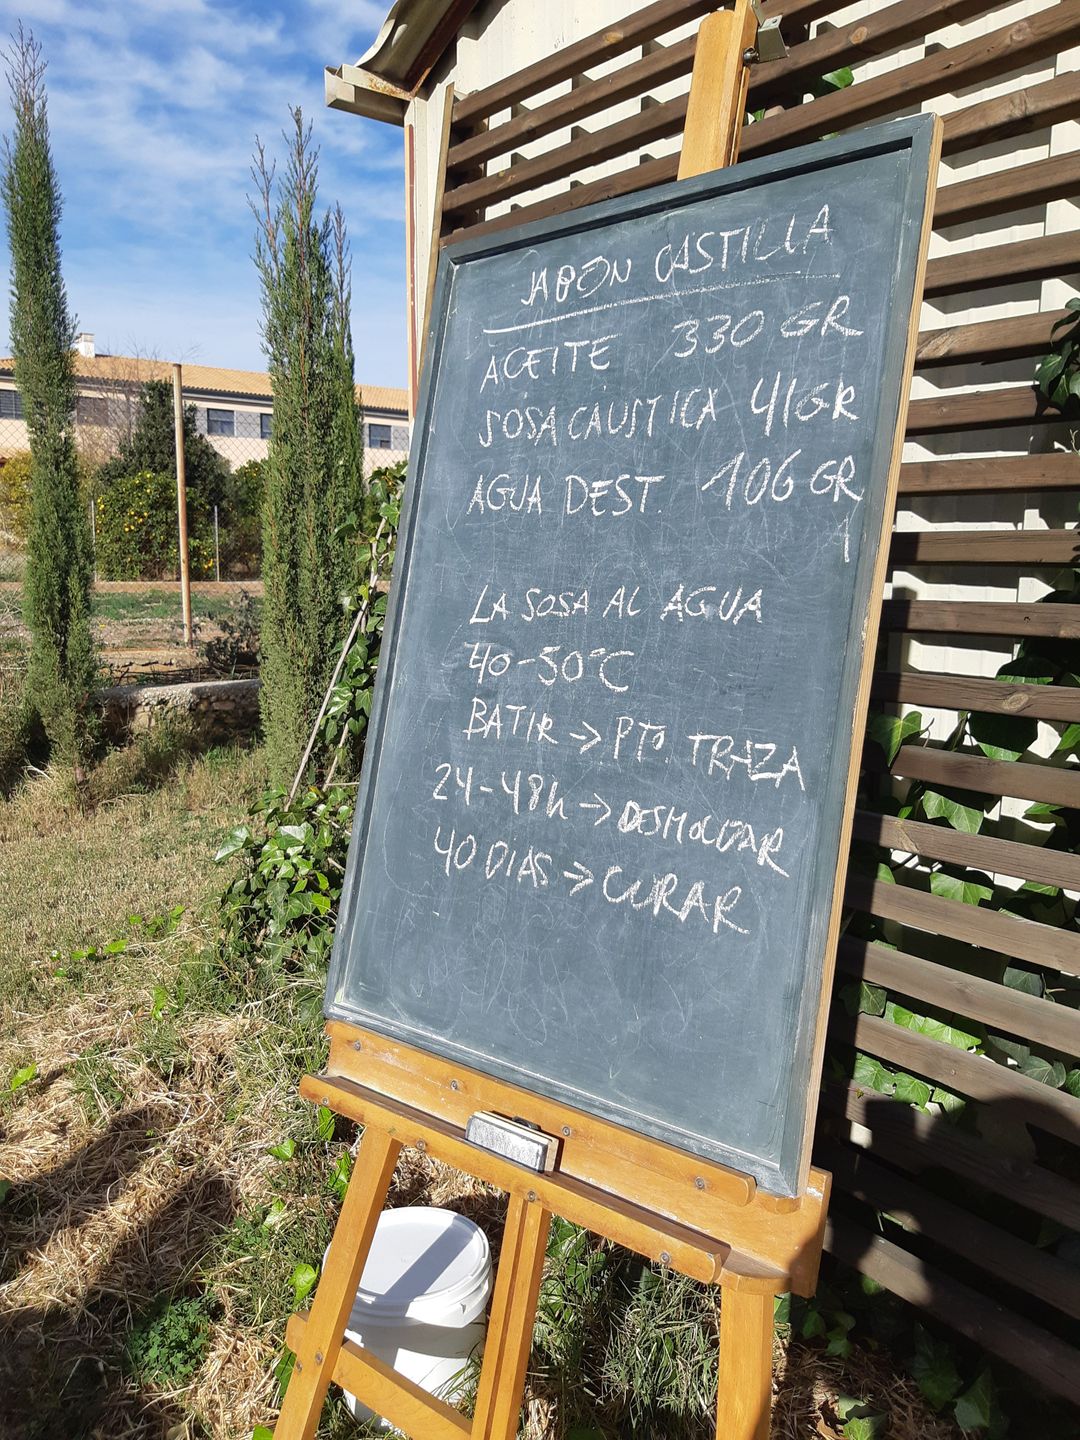 JABÓN CASTILLA
ACEITE 330 GR
SOSA CAUSTICA 41GR
AGUA DEST. 106 GR
LA SOSA AL AGUA
40-50°C
BATIR → PTO. TRAZA
24-48h → DESMOLDAR
40 DIAS → CURAR